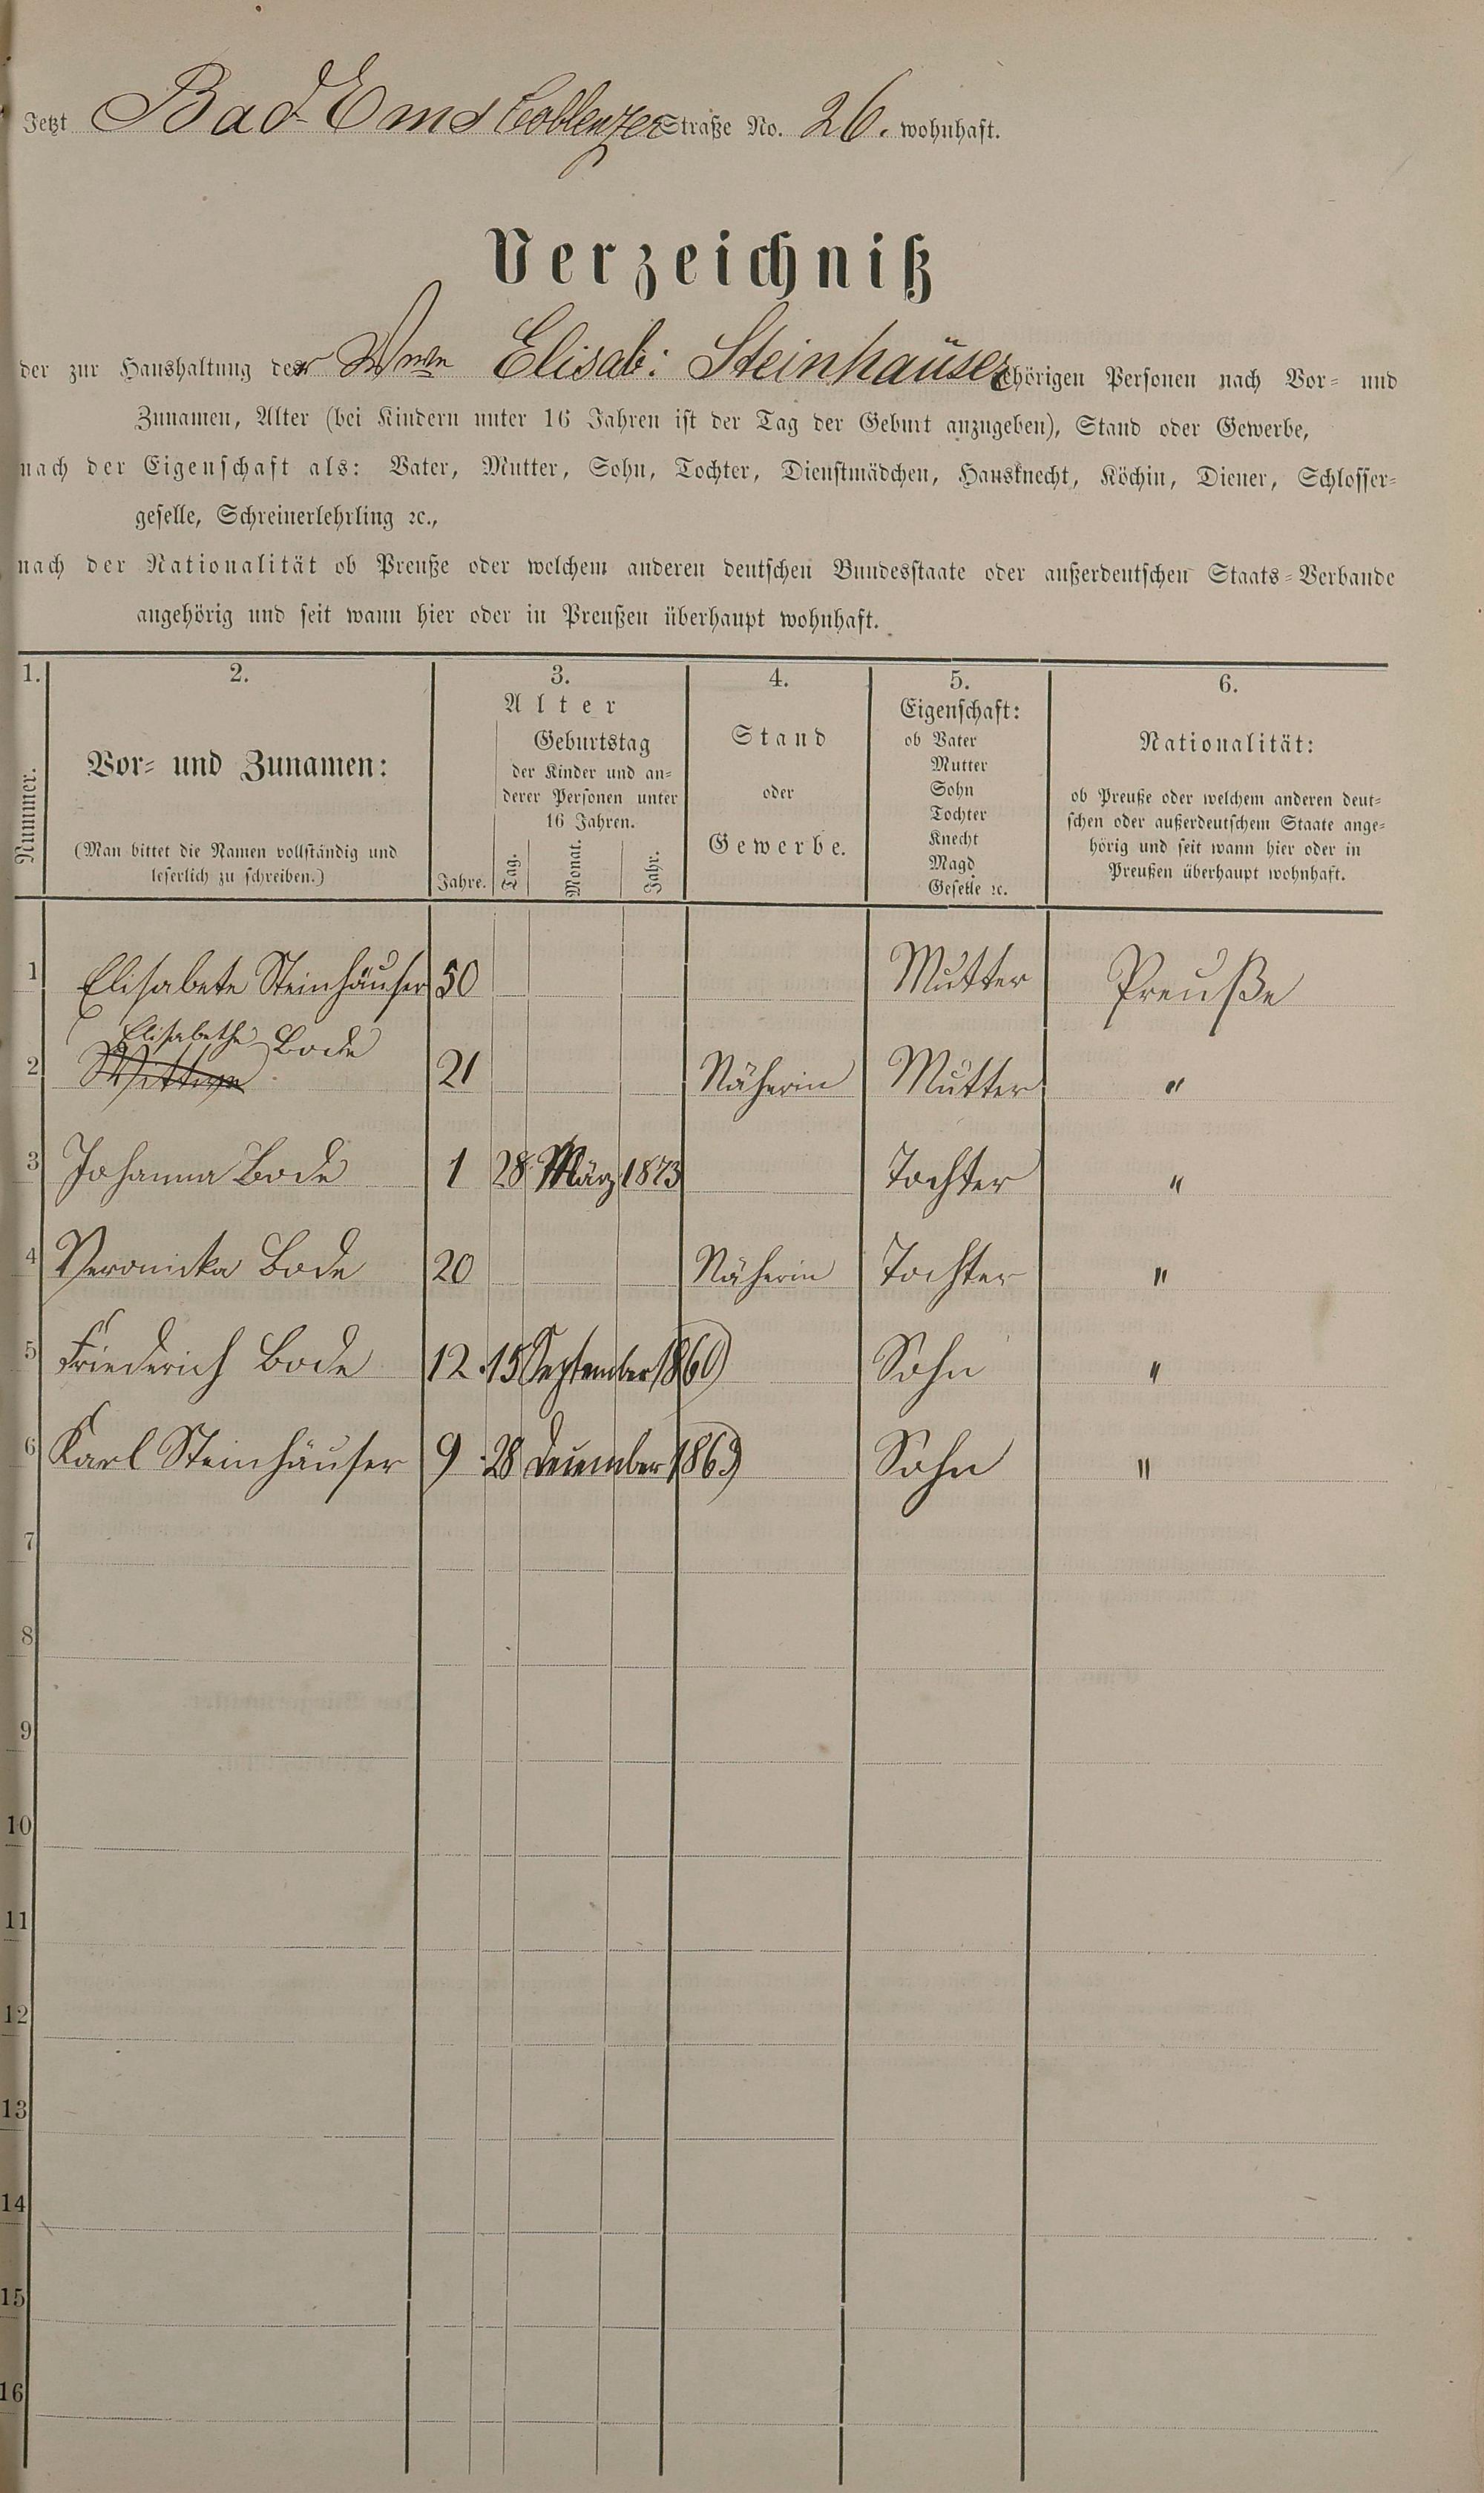 Jetzt Bad Ems Coblenzer Straße No. 26. wohnhaft.
Verzeichniß
der zur Haushaltung der Wwe Elisab: Steinhäuser gehörigen Personen nach Vor- und
Zunamen, Alter (bei Kindern unter 16 Jahren ist der Tag der Geburt anzugeben), Stand oder Gewerbe,
nach der Eigenschaft als: Vater, Mutter, Sohn, Tochter, Dienstmädchen, Hausknecht, Köchin, Diener, Schlosser-
geselle, Schreinerlehrling ꝛc.,
nach der Nationalität ob Preuße oder welchem anderen deutschen Bundesstaate oder außerdeutschen Staats-Verbande
angehörig und seit wann hier oder in Preußen überhaupt wohnhaft.
1.
Nummer.
2.
Vor- und Zunamen:
(Man bittet die Namen vollständig und
leserlich zu schreiben.)
3.
Alter
Geburtstag
der Kinder und an-
derer Personen unter
16 Jahren.
Jahre. Tag. Monat. Jahr.
4.
Stand
oder
Gewerbe.
5.
Eigenschaft:
ob Vater
Mutter
Sohn
Tochter
Knecht
Magd
Geselle ꝛc.
6.
Nationalität:
ob Preuße oder welchem anderen deut-
schen oder außerdeutschem Staate ange-
hörig und seit wann hier oder in
Preußen überhaupt wohnhaft.
1 Elisabete Steinhäuser 50 Mutter Preuße
Elisabethe Bode
2 Wittwe 21 Näherin Mutter "
3 Johanna Bode 1 28 März 1873 Tochter "
4 Veronicka Bode 20 Näherin Tochter "
5 Friederich Bode 12 . 15 September 1860 Sohn "
6 Karl Steinhäuser 9 . 28 December 1863 Sohn "
7
8
9
10
11
12
13
14
15
16